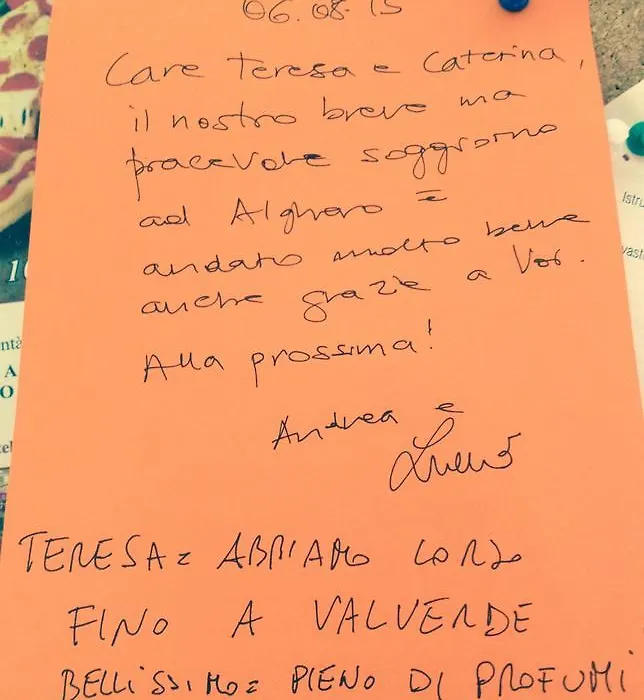 06.08.15
Care Teresa e Caterina,
il nostro breve ma
piacevole soggiorno
ad Alghero è
andato molto bene
anche grazie a Voi.
Alla prossima!
Andrea e
TERESA: ABBIAMO CORSO
FINO A VALVERDE
BELLISSIMO: PIENO DI PROFUMI
Istru
vast
ntà
A
O
tel